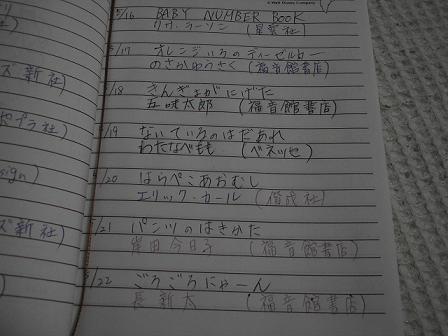 Walt Disney Company
社)
ズ新社)
プラ社)
sign)
ズ新社)
5/16 BABY NUMBER BOOK
リサ・ラーソン (星雲社)
/17 オレンジいろのディーゼルカー
のさかゆうさく (福音館書店)
/18 きんぎょがにげた
五味太郎 (福音館書店)
/19 ないているのはだあれ
わたなべもも (ベネッセ)
/20 はらぺこあおむし
エリック・カール (偕成社)
/21 パンツのはきかた
岸田今日子 (福音館書店)
/22 ごろごろにゃーん
長新太 (福音館書店)